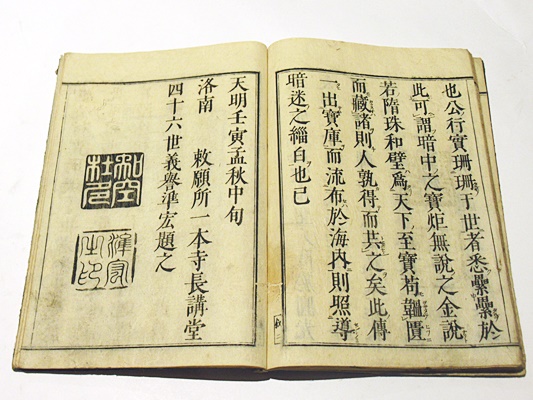 也公行實珊珊于世者悉纍纍於
此可謂暗中之寶炬無說之金說
若隋珠和璧爲天下至寶苟韞匵
而藏諸則人孰得而共之矣此傳
一出寶庫而流布於海內則照導
暗迷之緇白也已
天明壬寅孟秋中旬
洛南 敕願所一本寺長講堂
四十六世義譽準宏題之